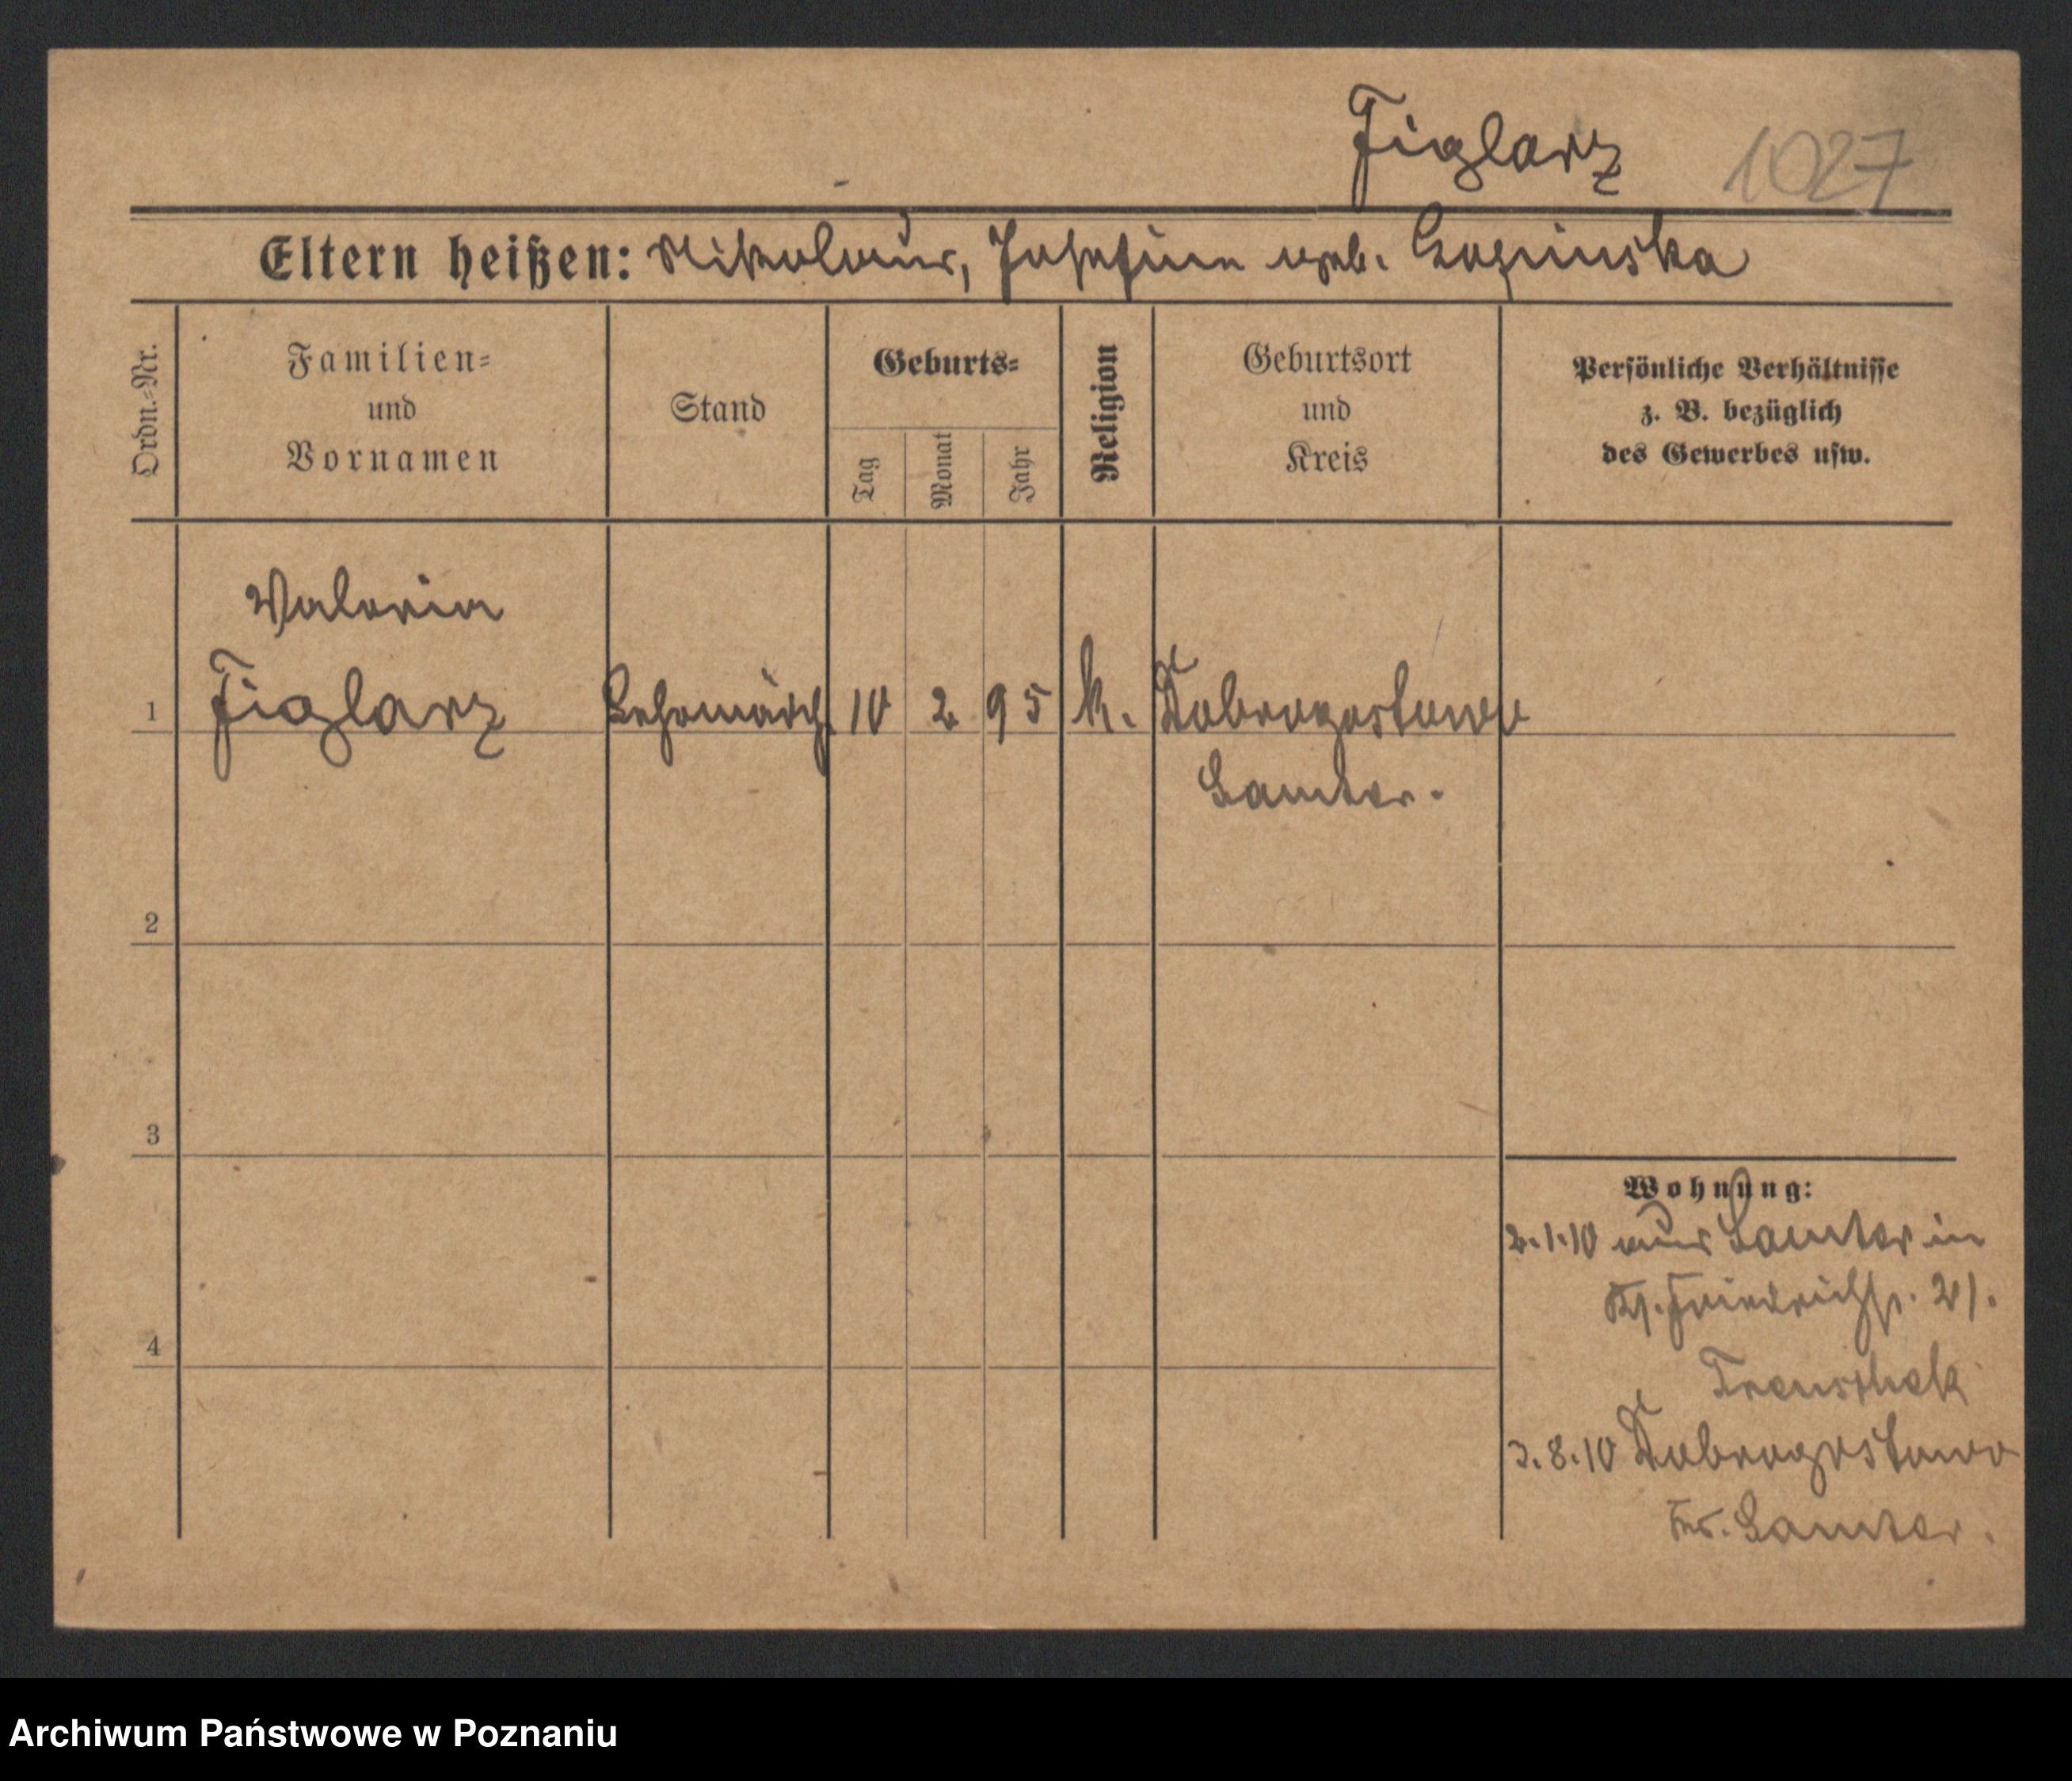 Figlarz 1027
Eltern heißen: Nikolaus, Josefine geb. Lopinska
Ordn.=Nr.
Familien=
und
Vornamen
Stand
Geburts=
Tag
Monat
Jahr
Religion
Geburtsort
und
Kreis
Persönliche Verhältnisse
z. B. bezüglich
des Gewerbes usw.
Valeria
1 Figlarz Lehrmädch. 10 2 95 k. Dobrogostowo
Samter.
2
3
4
Wohnung:
2.1.10 aus Samter in
Friedrichstr. 21.
3.8.10 Dobrogostowo
Kr. Samter.
Archiwum Państwowe w Poznaniu